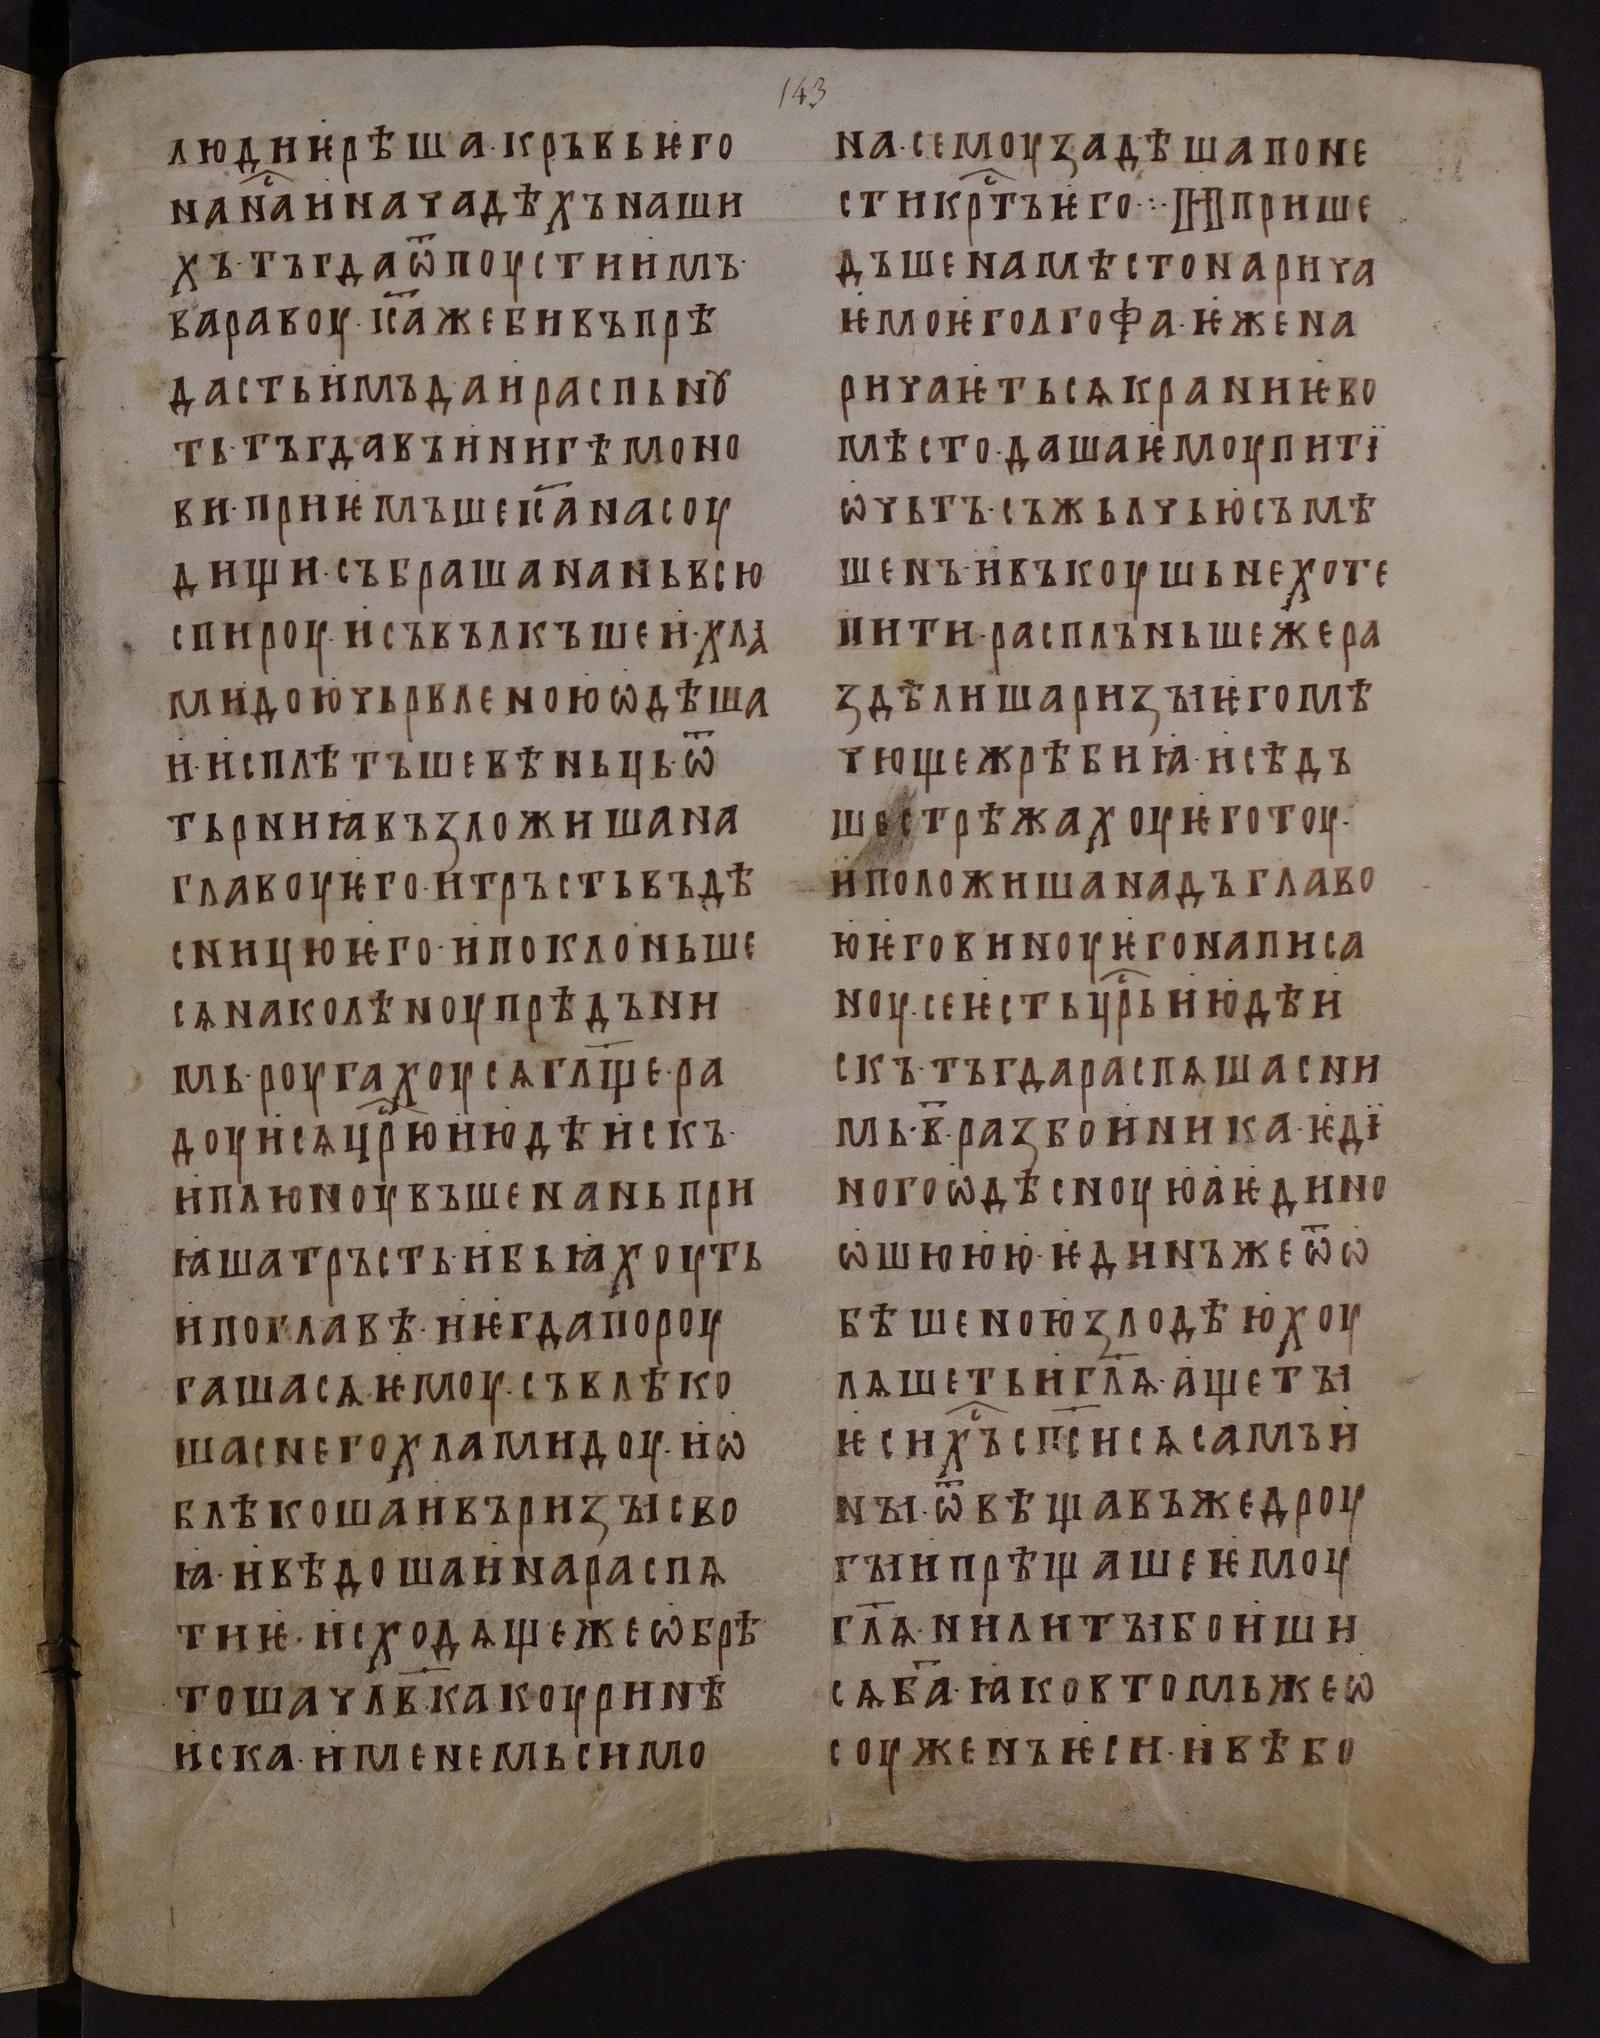 143
людиѥрѣша·кръвьѥго
нана҇иначадѣхънаши
хъ·тъгдаѿпоустиимъ·
варавоу·і҃сажебивъпрѣ
дастьимъдаираспьнꙋ
ть·тъгдавъиинигѣмоно
ви·приѥмъшеі҃санасоу
дищи·събрашананьвсю
спироу·исъвълкъшеи·хлꙗ
мидоючьрвленоюѡдѣша
и·исплѣтъшевѣньць·ѿ
тьрниꙗвъзложишана
главоуѥго·итрьстьвъдѣ
сницюѥго·ипоклоньше
сѧнаколѣноупрѣдъни
мь·роугахоусѧгл҃ще·ра
доуисѧцр҇июдѣискъ·
иплюноувъшенаньпри
ꙗшатръсть·ибьꙗхоуть
ипоглавѣ·иѥгдапороу
гашасѧѥмоу·съвлѣко
шаснегохламидоу·иѡ
блѣкошаивъризꙑсво
ꙗ·иведошаинараспѧ
тиѥ·исходѧщежеѡбрѣ
тошачл҃вкакоуринѣ
иска·именемьсимо
на·семоузадѣшапоне
стикрт҇ъѥго·:·Иприше
дъшенамѣстонарича
ѥмоѥголгофа·ѥжена
ричаѥтьсѧкраниѥво
мѣсто·дашаѥмоупитї
ѡчьтъ·съжьлчьюсъмѣ
шенъ·ивъкоушьнехоте
пити·распльньшежера
здѣлишаризꙑѥгомѣ
чющежрѣбиꙗ·исѣдъ
шестрѣжахоуѥготоу·
иположишанадъглаво
юѥговиноуѥгонаписа
ноу·сеѥстьцр҇ьиюдѣи
скъ·тъгдараспѧшасни
мь·в҃·разбоиника·ѥдї
ногоѡдѣсноуюаѥдино
ѡшююю·ѥдинъжеѿѡ
бѣшеноюзлодѣюхоу
лѧшетьигл҃ѧ·ащетꙑ
ѥсих҇ъсп҃сисѧсамъи
нꙑ·ѿвѣщавъжедроу
гꙑипрѣщашеѥмоу
гл҃ѧ·нилитꙑбоиши
сѧб҃а·ꙗковтомьжеѡ
соуженъѥси·ивѣбо